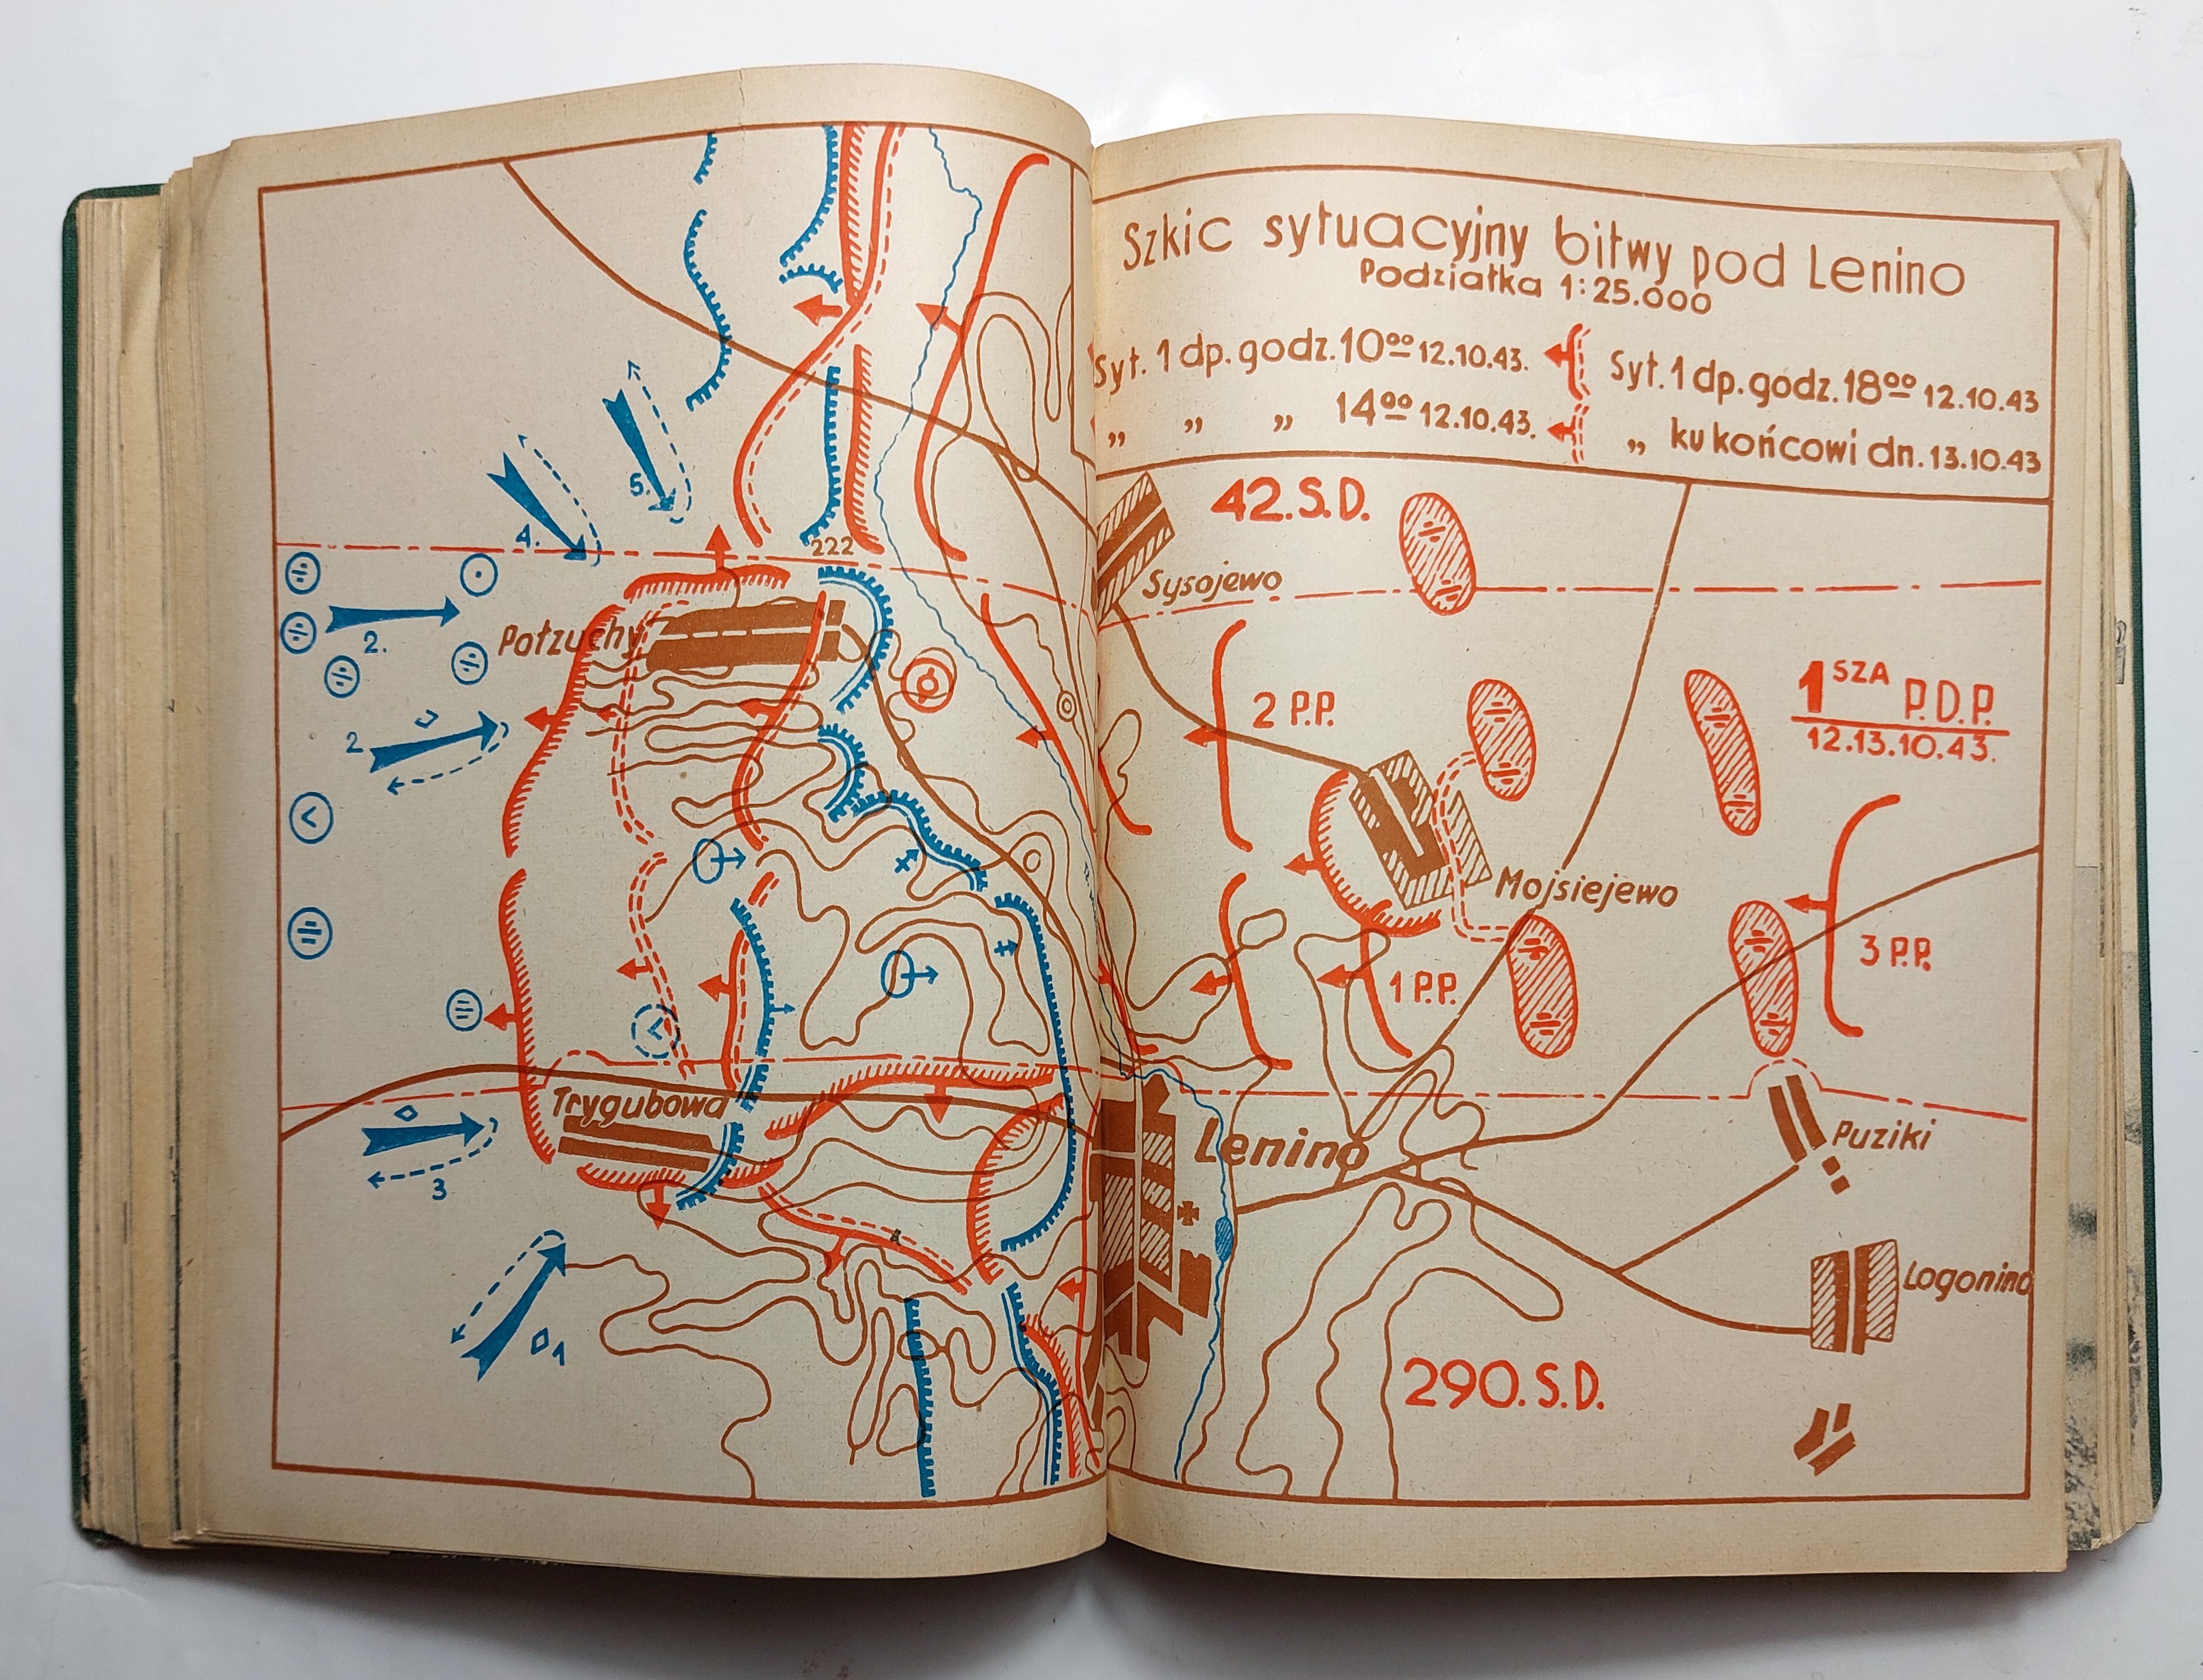 Szkic sytuacyjny bitwy pod Lenino
Podziałka 1:25.000
Syt. 1 dp. godz. 10⁰⁰ 12.10.43.
Syt. 1 dp. godz. 18⁰⁰ 12.10.43
„ „ „ 14⁰⁰ 12.10.43.
„ ku końcowi dn. 13.10.43
42. S.D.
Sysojewo
5.
4.
222
2.
Połzuchy
2
2 P.P.
1 SZA P.D.P.
12.13.10.43.
Mojsiejewo
1 P.P.
3 P.P.
Trygubowa
3
Lenino
Puziki
Logonino
1
290. S.D.